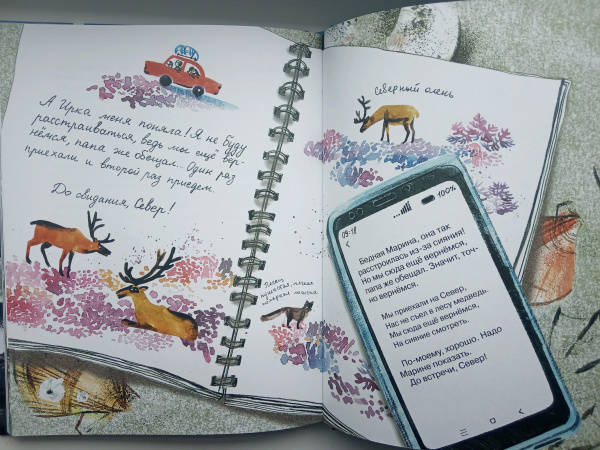 А Ирка меня поняла! Я не буду
расстраиваться, ведь мы ещё вер-
нёмся, папа же обещал. Один раз
приехали и второй раз приедем.
До свидания, Север!
Северный олень
09:18
100%
Бедная Марина, она так
расстроилась из-за сияния!
Но мы сюда ещё вернёмся,
папа же обещал. Значит, точ-
но вернёмся.
Мы приехали на Север,
Нас не съел в лесу медведь.
Мы сюда ещё вернёмся,
На сияние смотреть.
По-моему, хорошо. Надо
Марине показать.
До встречи, Север!